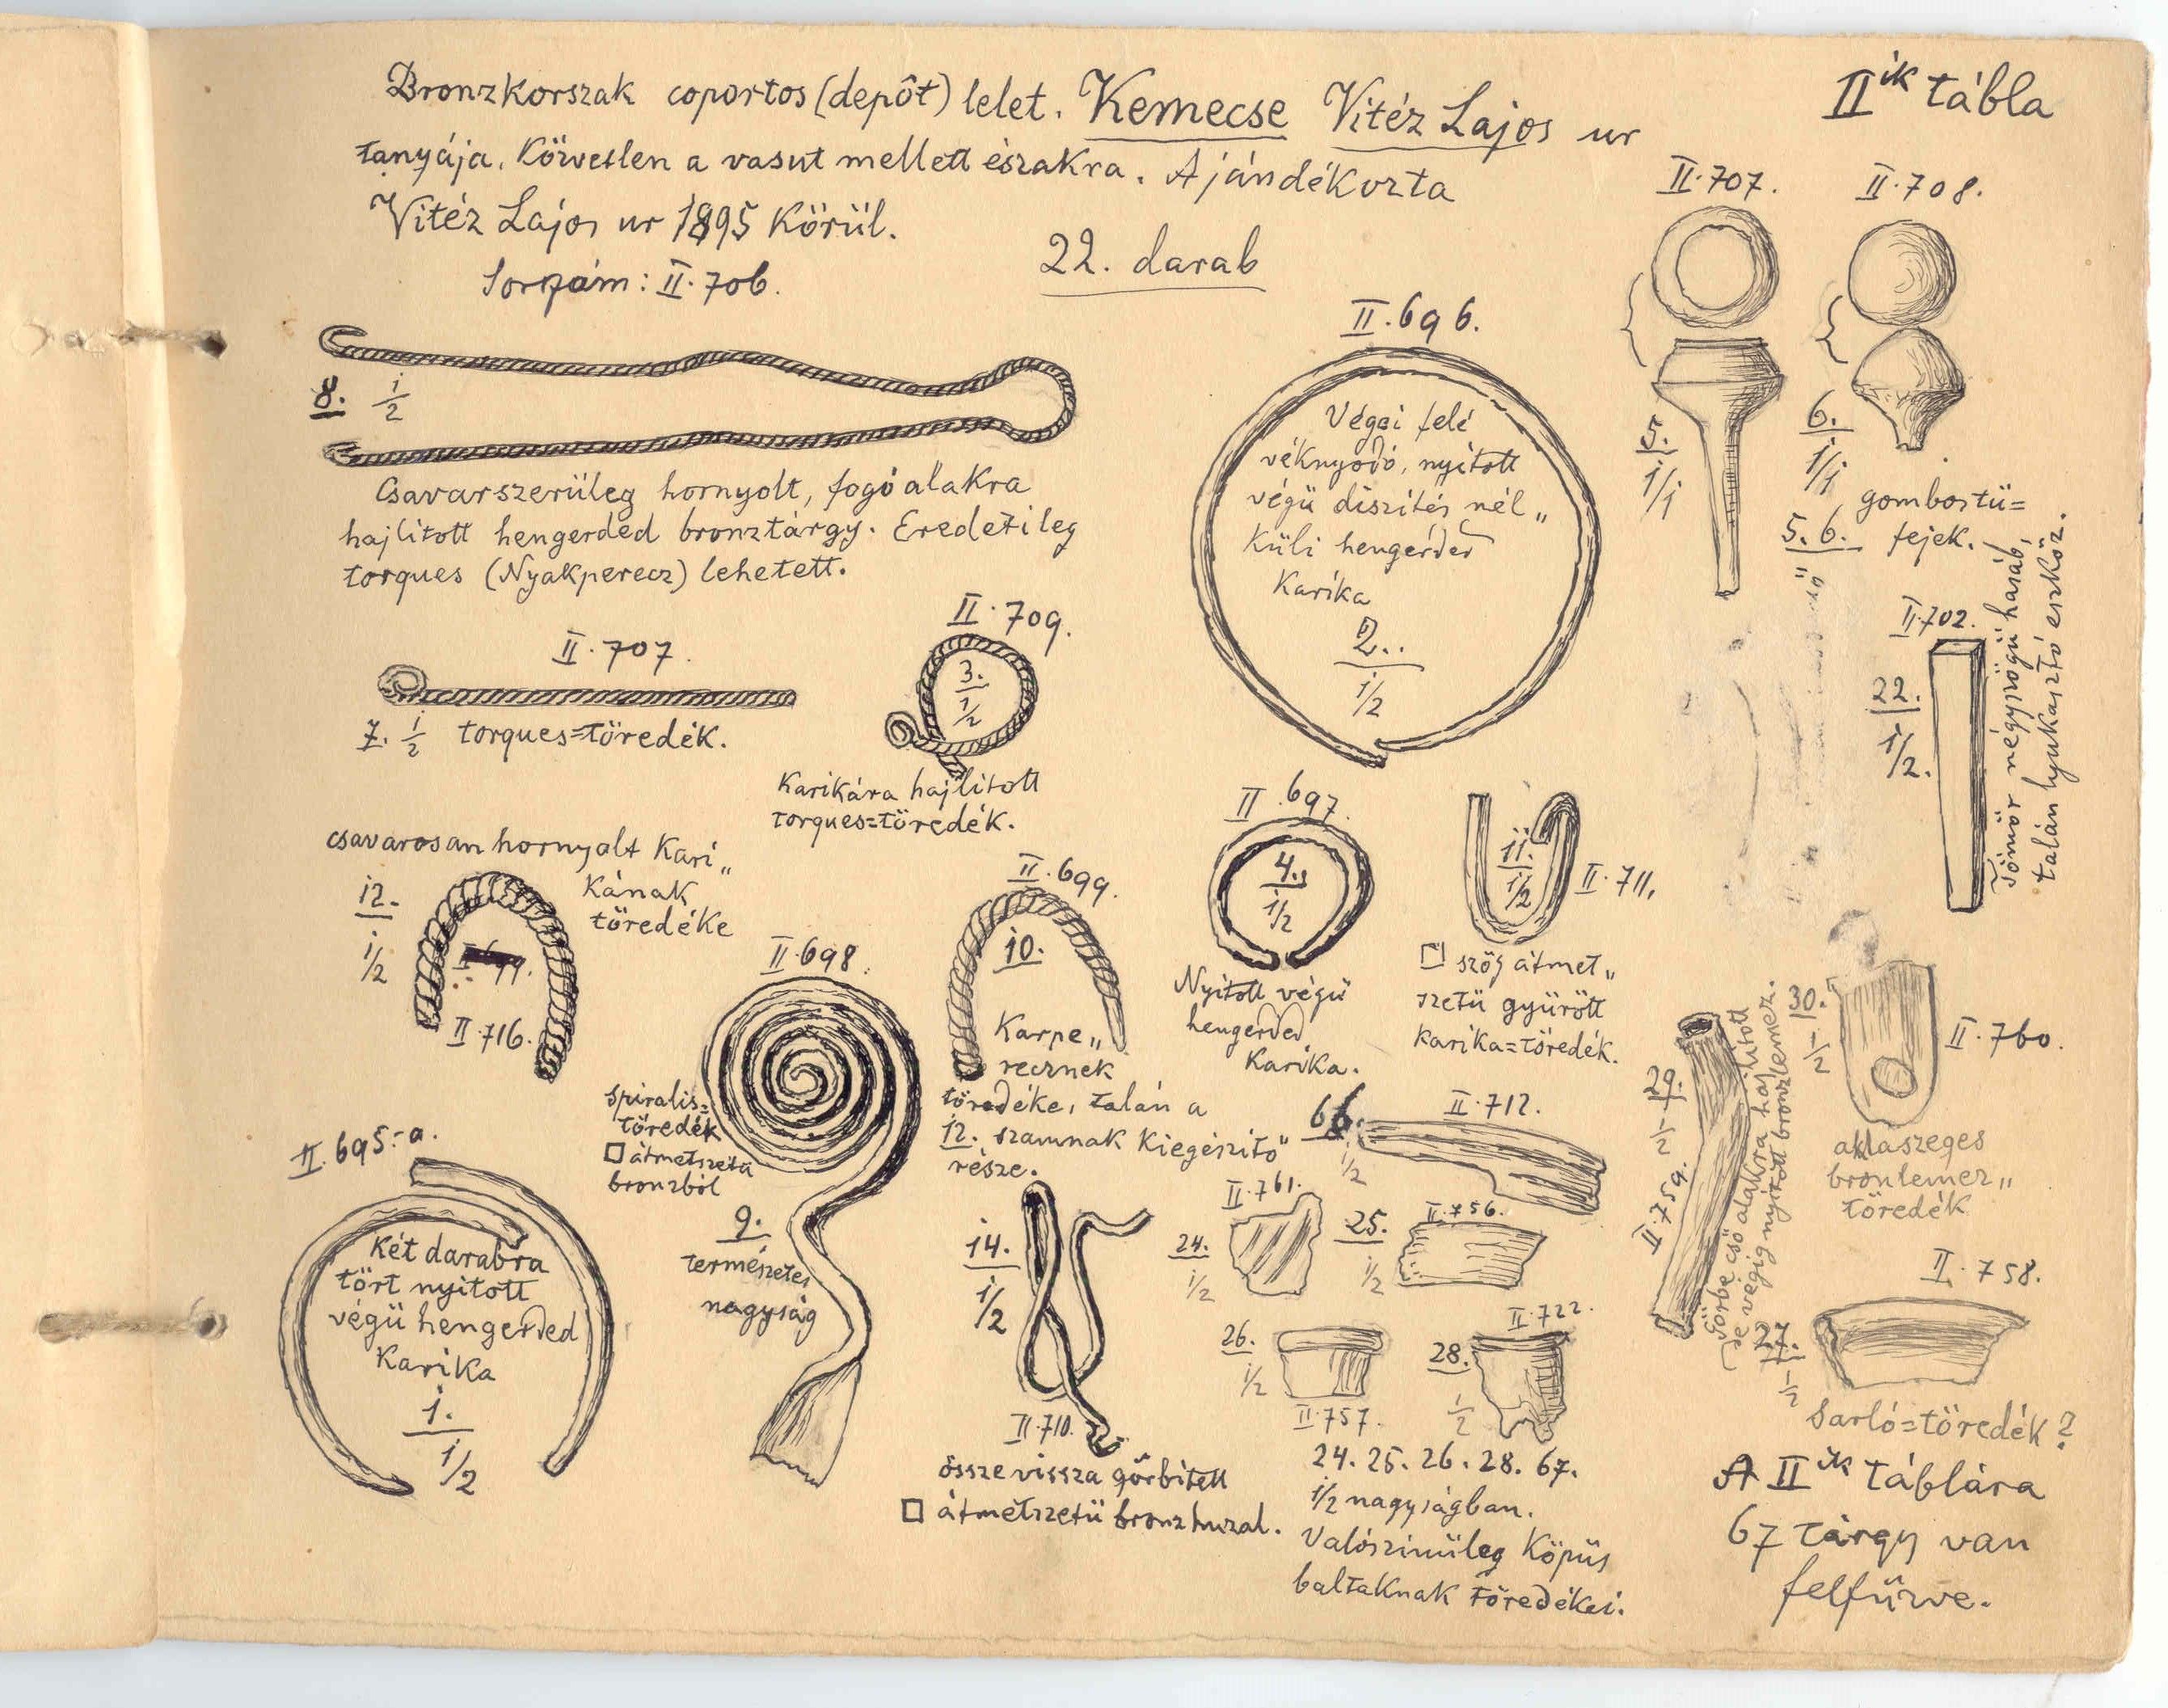 Bronzkorszak coportos (depôt) lelet. Kemecse Vitéz Lajos ur
tanyája. Közvetlen a vasut mellett északra. Ajándékozta
Vitéz Lajos ur 1895 körül.
Sorszám: II. 706.
22. darab
IIik tábla
II. 707.
II. 708.
5.
1/1
6.
1/1
gombostü=
5. 6. fejek.
8. 1/2
Csavarszerüleg hornyolt, fogó alakra
hajlitott hengerded bronztárgy. Eredetileg
torques (Nyakperecz) lehetett.
II. 696.
Végei felé
véknyodó, nyitott
végü diszités nél„
küli hengerded
karika
2..
1/2
II. 702.
22.
1/2.
Tömör négyszögü hasáb,
talán lyukasztó eszköz.
II. 707.
7. 1/2 torques=töredék.
II. 709.
3.
1/2
Karikára hajlitott
torques=töredék.
csavarosan hornyolt Kari„
kának
töredéke
12.
1/2
II. 716.
II. 698.
spiralis=
töredék
□ átmetszetü
bronzból
9.
természetes
nagyság
II. 699.
10.
Karpe„
recznek
töredéke, talán a
12. szamnak kiegészitö"
része.
II. 697.
4.
1/2
Nyitott végü
hengerded
karika.
11.
1/2
II. 711.
□ szög átmet„
szetü gyürött
karika=töredék.
II. 695.-a.
Két darabra
tört nyitott
végü hengerded
Karika
1.
1/2
14.
1/2
II. 710.
össze vissza görbitett
□ átmetszetü bronzhuzal.
II. 712.
1/2
II. 761.
24.
1/2
II. 756.
25.
1/2
26.
1/2
II. 757.
II. 722.
28.
1/2
24. 25. 26. 28. 67.
1/2 nagyságban.
Valószinüleg Köpüs
baltaknak töredékei.
29.
1/2
II. 759.
Görbe csö alakra hajlitott
de végig nyitott bronzlemez.
30.
1/2
II. 760.
aklaszeges
bronlemez„
töredék
II. 758.
27.
1/2
Sarló=töredék?
A IIik táblára
67 tárgy van
felfüzve.